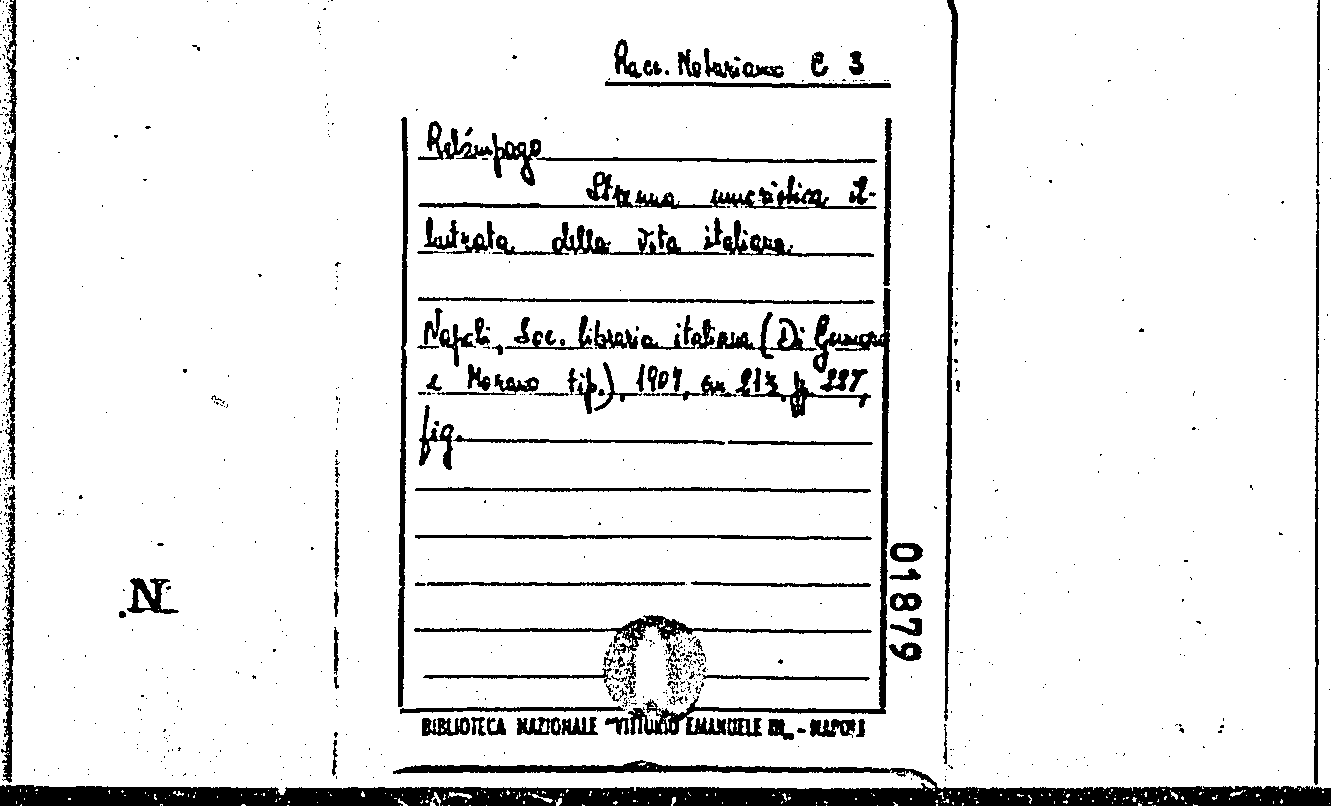 Racc. Notariamo C 3
Relámpago
Strenna umoristica il-
lustrata della vita italiana.
Napoli, Soc. libraria italiana (Di Gennaro
e Morano tip.), 1907, in 213, pp. 227,
fig.
01879
N
BIBLIOTECA NAZIONALE "VITTORIO EMANUELE III„ - NAPOLI